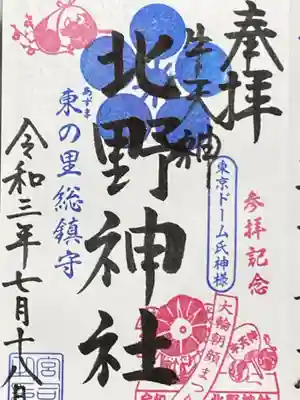 奉拝
牛天神
北野神社
東京ドーム氏神様
参拝記念
あずま
東の里総鎮守
令和三年七月十八日
大輪朝顔まつ